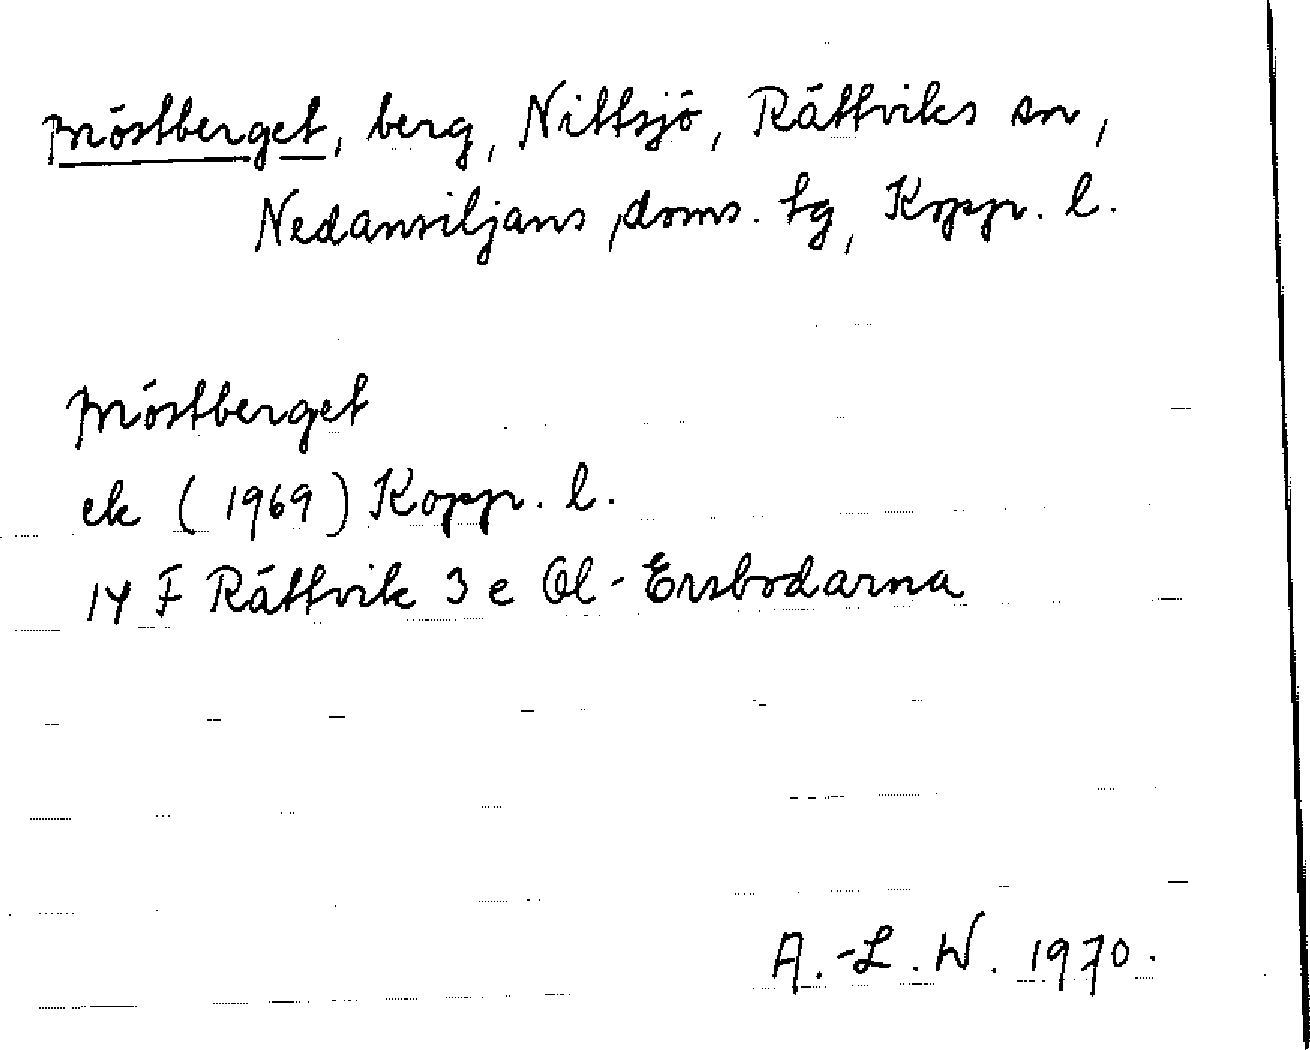 Möstberget, berg, Nittsjö, Rättviks sn,
Nedansiljans doms. tg, Kopp. l.
Möstberget
ek (1969) Kopp. l.
14 F Rättvik 3 e Ol-Ersbodarna
A.-L. W. 1970.